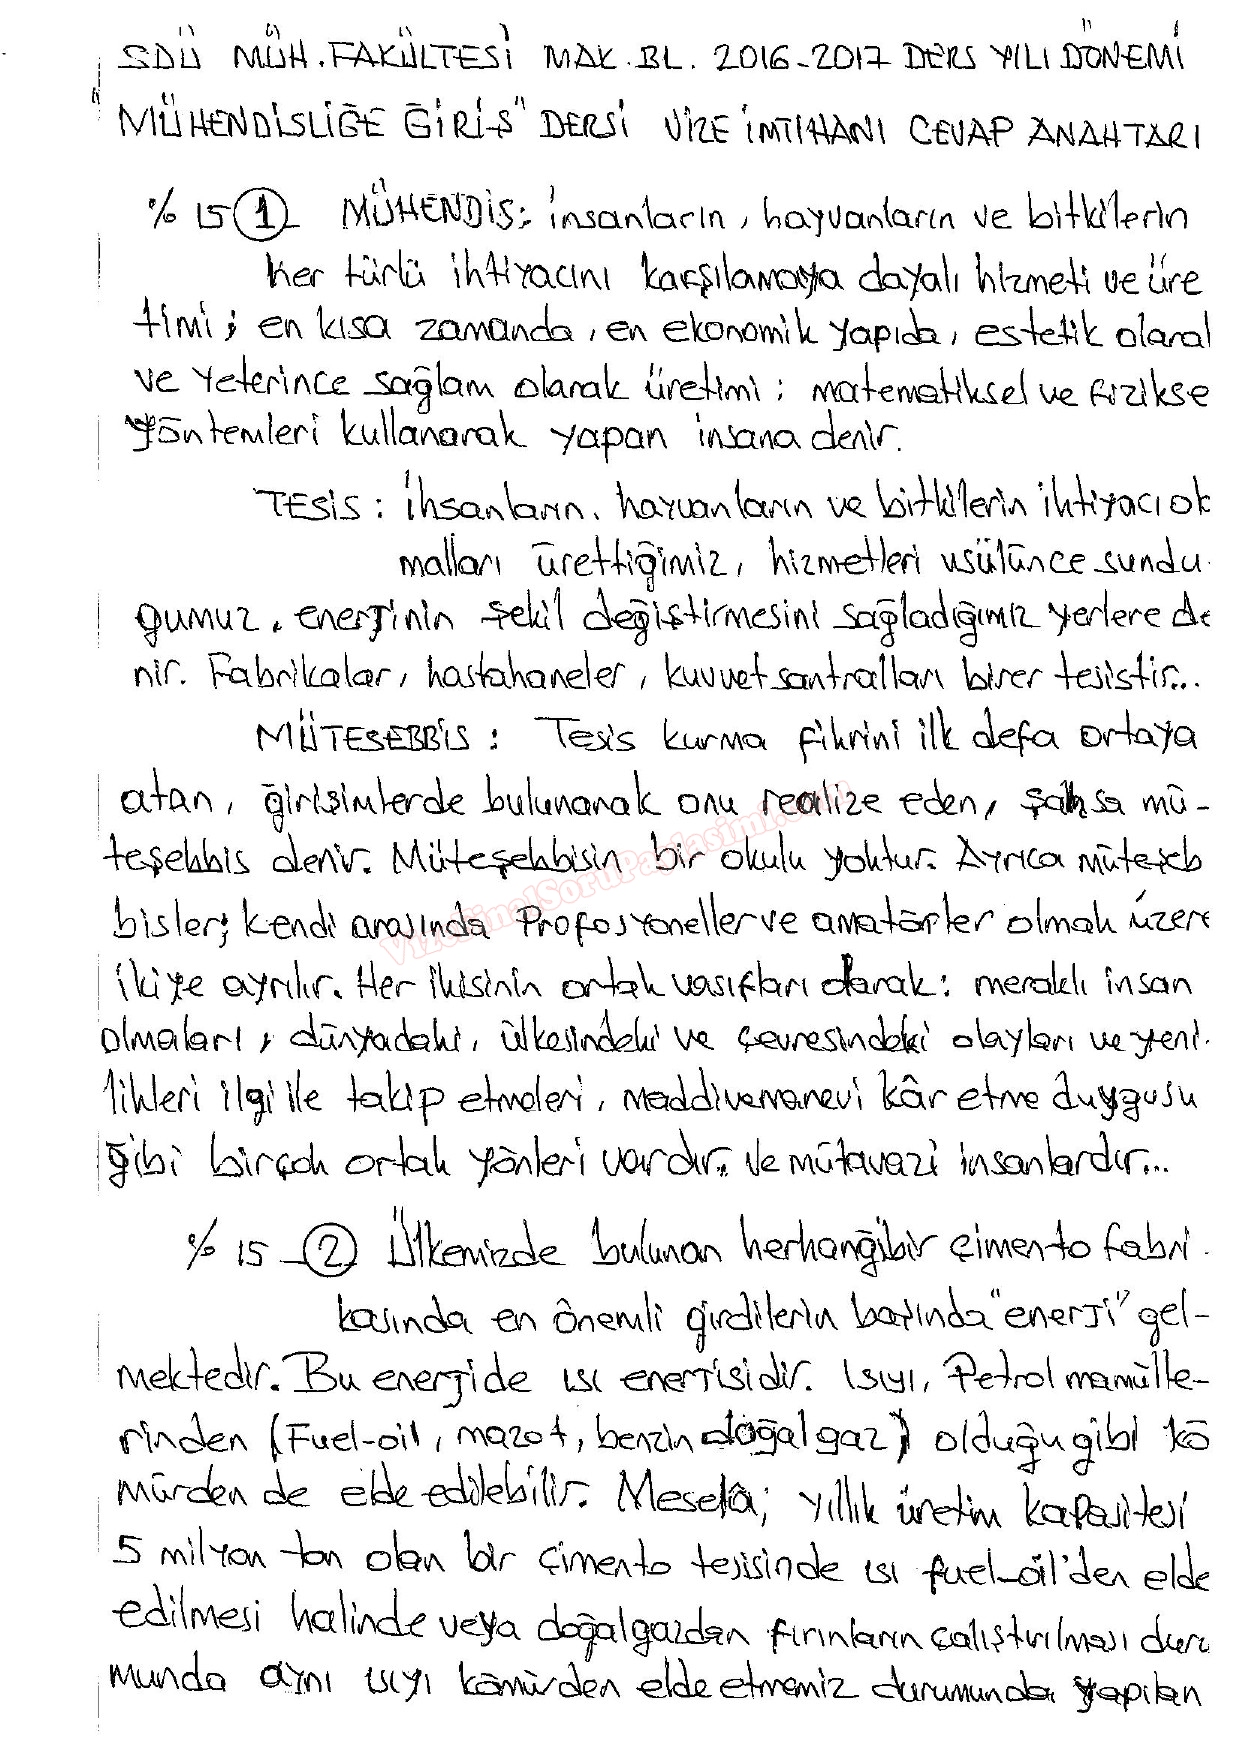 SDÜ MÜH. FAKÜLTESİ MAK. BL. 2016-2017 DERS YILI DÖNEMİ
"MÜHENDİSLİĞE ĞİRİŞ" DERSİ VİZE İMTIHANI CEVAP ANAHTARI
% 15 1 MÜHENDİS: insanların, hayvanların ve bitkilerin
her türlü ihtiyacını karşılamaya dayalı hizmeti ve üre
timi; en kısa zamanda, en ekonomik yapıda, estetik olaral
ve yeterince sağlam olarak üretimi; matematiksel ve fizikse
yöntemleri kullanarak yapan insana denir.
TESİS: İnsanların, hayvanların ve bitkilerin ihtiyacı ok
malları ürettiğimiz, hizmetleri usülünce sundu
gumuz, enerjinin şekil değiştirmesini sağladığımız yerlere de
nir. Fabrikalar, hastahaneler, kuvvet santralları birer tesistir...
MÜTEŞEBBİS: Tesis kurma fikrini ilk defa ortaya
atan, ğirişimlerde bulunarak onu realize eden, şahsa mü-
teşebbis denir. Müteşebbisin bir okulu yoktur. Ayrıca müteşeb
bisler; kendi arasında Profosyoneller ve amatörler olmak üzere
ikiye ayrılır. Her ikisinin ortak vasıfları olarak: meraklı insan
olmaları, dünyadaki, ülkesindeki ve çevresindeki olayları ve yeni.
likleri ilgi ile takip etmeleri, maddi ve manevi kâr etme duygusu
ğibi birçok ortak yönleri vardır. Ve mütavazi insanlardır...
% 15 2 Ülkemizde bulunan herhangibir çimento fabri.
kasında en önemli girdilerin başında "enerji" gel-
mektedir. Bu enerjide ısı enerjisidir. Isıyı, Petrol mamülle-
rinden (Fuel-oil, mazot, benzin doğalgaz) olduğu gibi kö
mürden de elde edilebilir. Meselâ; yıllık üretim kapasitesi
5 milyon ton olan bir çimento tesisinde ısı fuel-oil'den elde
edilmesi halinde veya doğalgazdan fırınların çalıştırılması duru
munda aynı ısıyı kömürden elde etmemiz durumunda yapılan
VizeFinalSoruPaylasimi.com